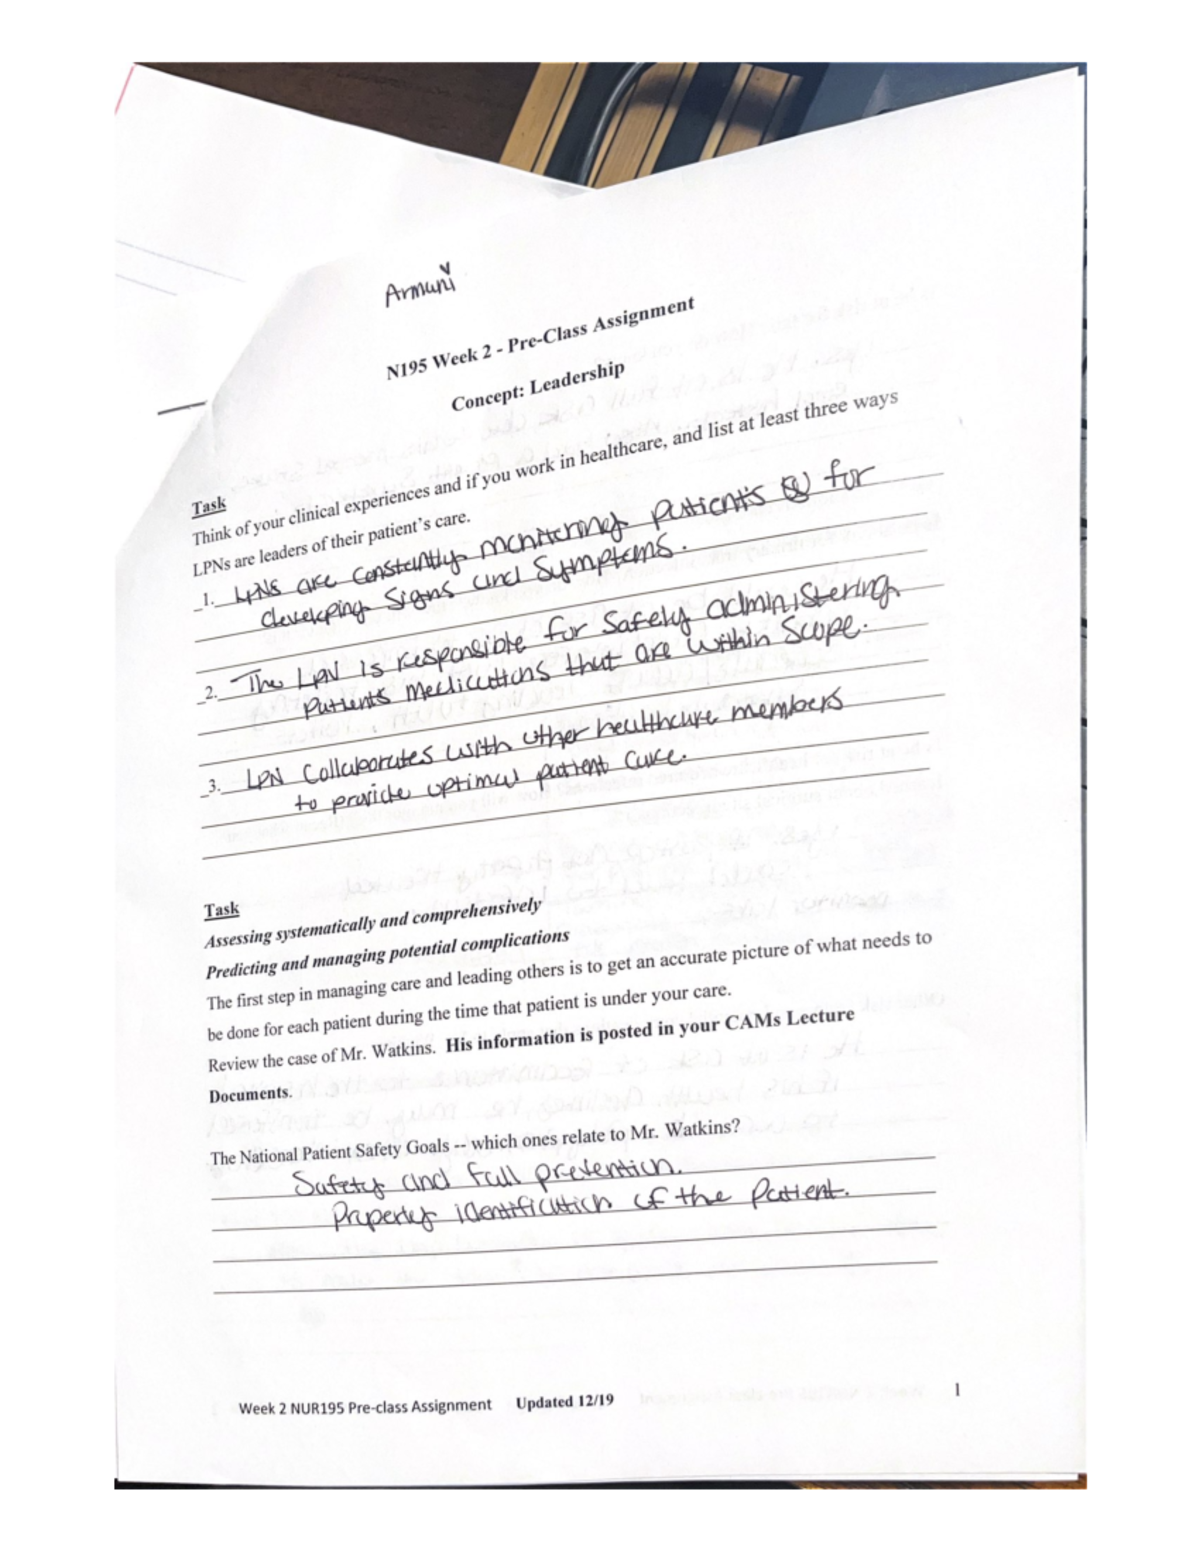 Armani
N195 Week 2 - Pre-Class Assignment
Concept: Leadership
Task
Think of your clinical experiences and if you work in healthcare, and list at least three ways
LPNs are leaders of their patient's care.
1. LPNs are constantly monitoring patient's for
developing signs and symptoms.
2. The LPN is responsible for safely administering
patients medications that are within scope.
3. LPN collaborates with other healthcare members
to provide optimal patient care.
Task
Assessing systematically and comprehensively
Predicting and managing potential complications
The first step in managing care and leading others is to get an accurate picture of what needs to
be done for each patient during the time that patient is under your care.
Review the case of Mr. Watkins. His information is posted in your CAMs Lecture
Documents.
The National Patient Safety Goals -- which ones relate to Mr. Watkins?
Safety and fall prevention.
Properly identification of the patient.
Week 2 NUR195 Pre-class Assignment Updated 12/19
1